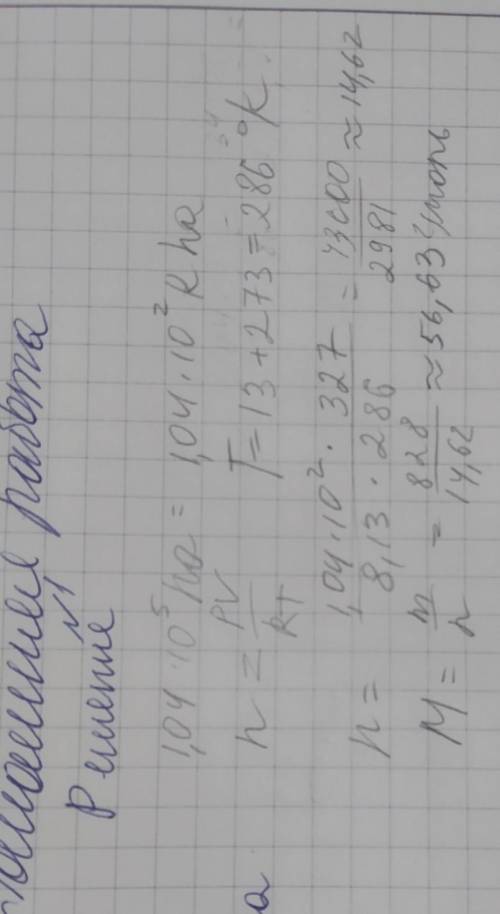 Домашняя работа
№1
Решение
1,04 · 10⁵ Па = 1,04 · 10² кПа
n = PV/RT T = 13 + 273 = 286 °K.
n = 1,04 · 10² · 327 / 8,13 · 286 = / 2981 ≈ 14,62
M = m/n = 828/14,62 ≈ 56,63 г/моль
а